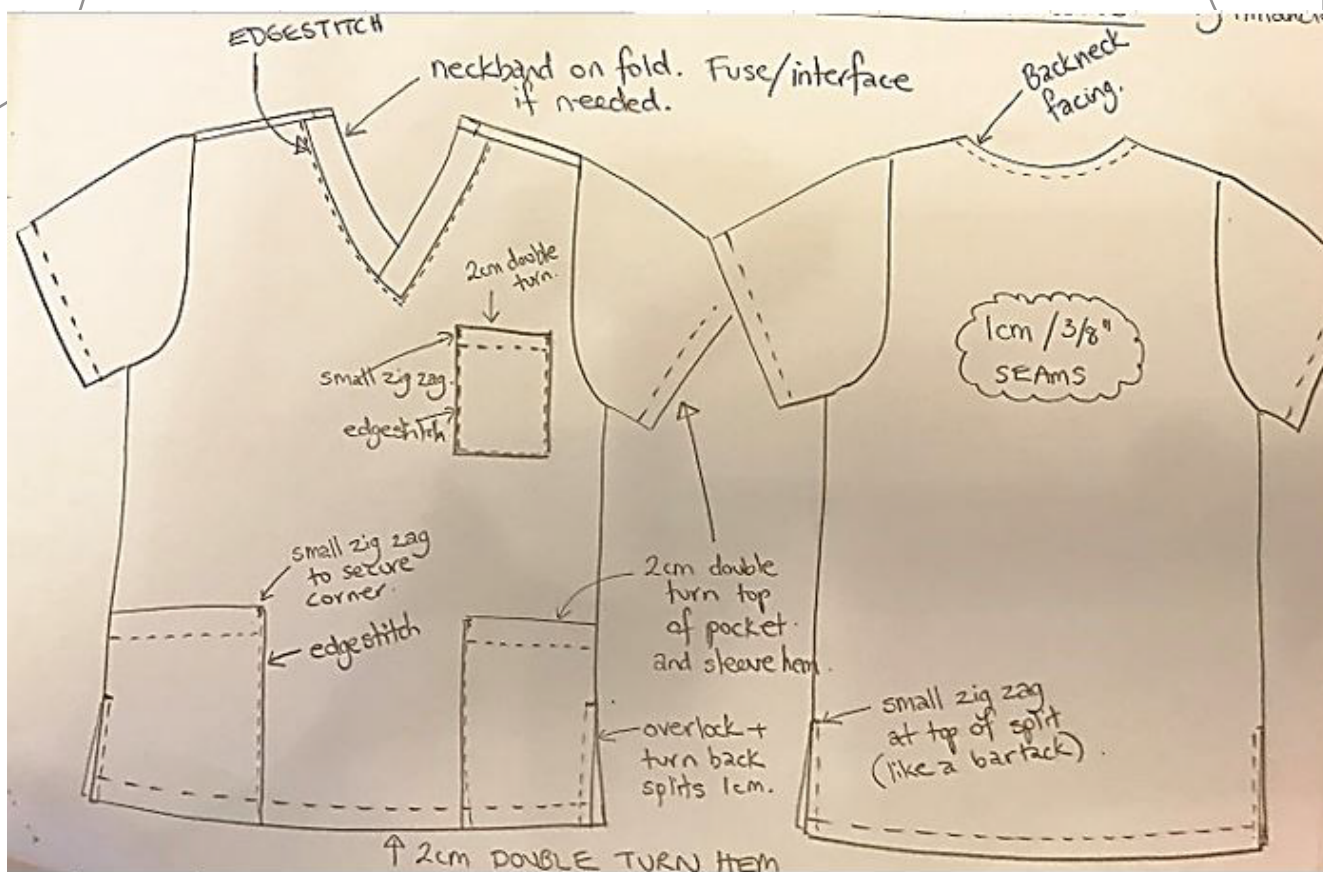 EDGESTITCH
neckband on fold. Fuse/interface
if needed.
Backneck
facing.
2cm double
turn.
small zig zag.
edgestitch
1cm / 3/8"
SEAMS
small zig zag
to secure
corner.
edgestitch
2cm double
turn top
of pocket.
and sleeve hem.
overlock +
turn back
splits 1cm.
small zig zag
at top of split
(like a bartack).
↑ 2cm DOUBLE TURN HEM